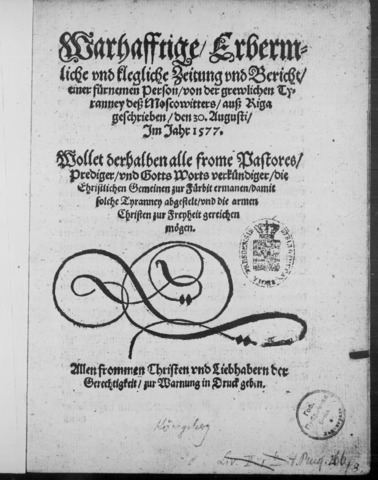 Warhafftige/ Erberm-
liche vnd klegliche Zeitung vnd Bericht/
einer fürnemen Person/ von der grewlichen Ty-
ranney deß Moscowitters/ auß Riga
geschrieben/ den 30. Augusti/
Im Jahr 1577.
Wollet derhalben alle frome Pastores/
Prediger/ vnd Gotts Worts verkündiger/ die
Christlichen Gemeinen zur Fürbit ermanen/ damit
solche Tyranney abgestelt/ vnd die armen
Christen zur Freyheit gereichen
mögen.
Allen frommen Christen vnd Liebhabern der
Gerechtigkeit/ zur Warnung in Druck geben.
Königsberg